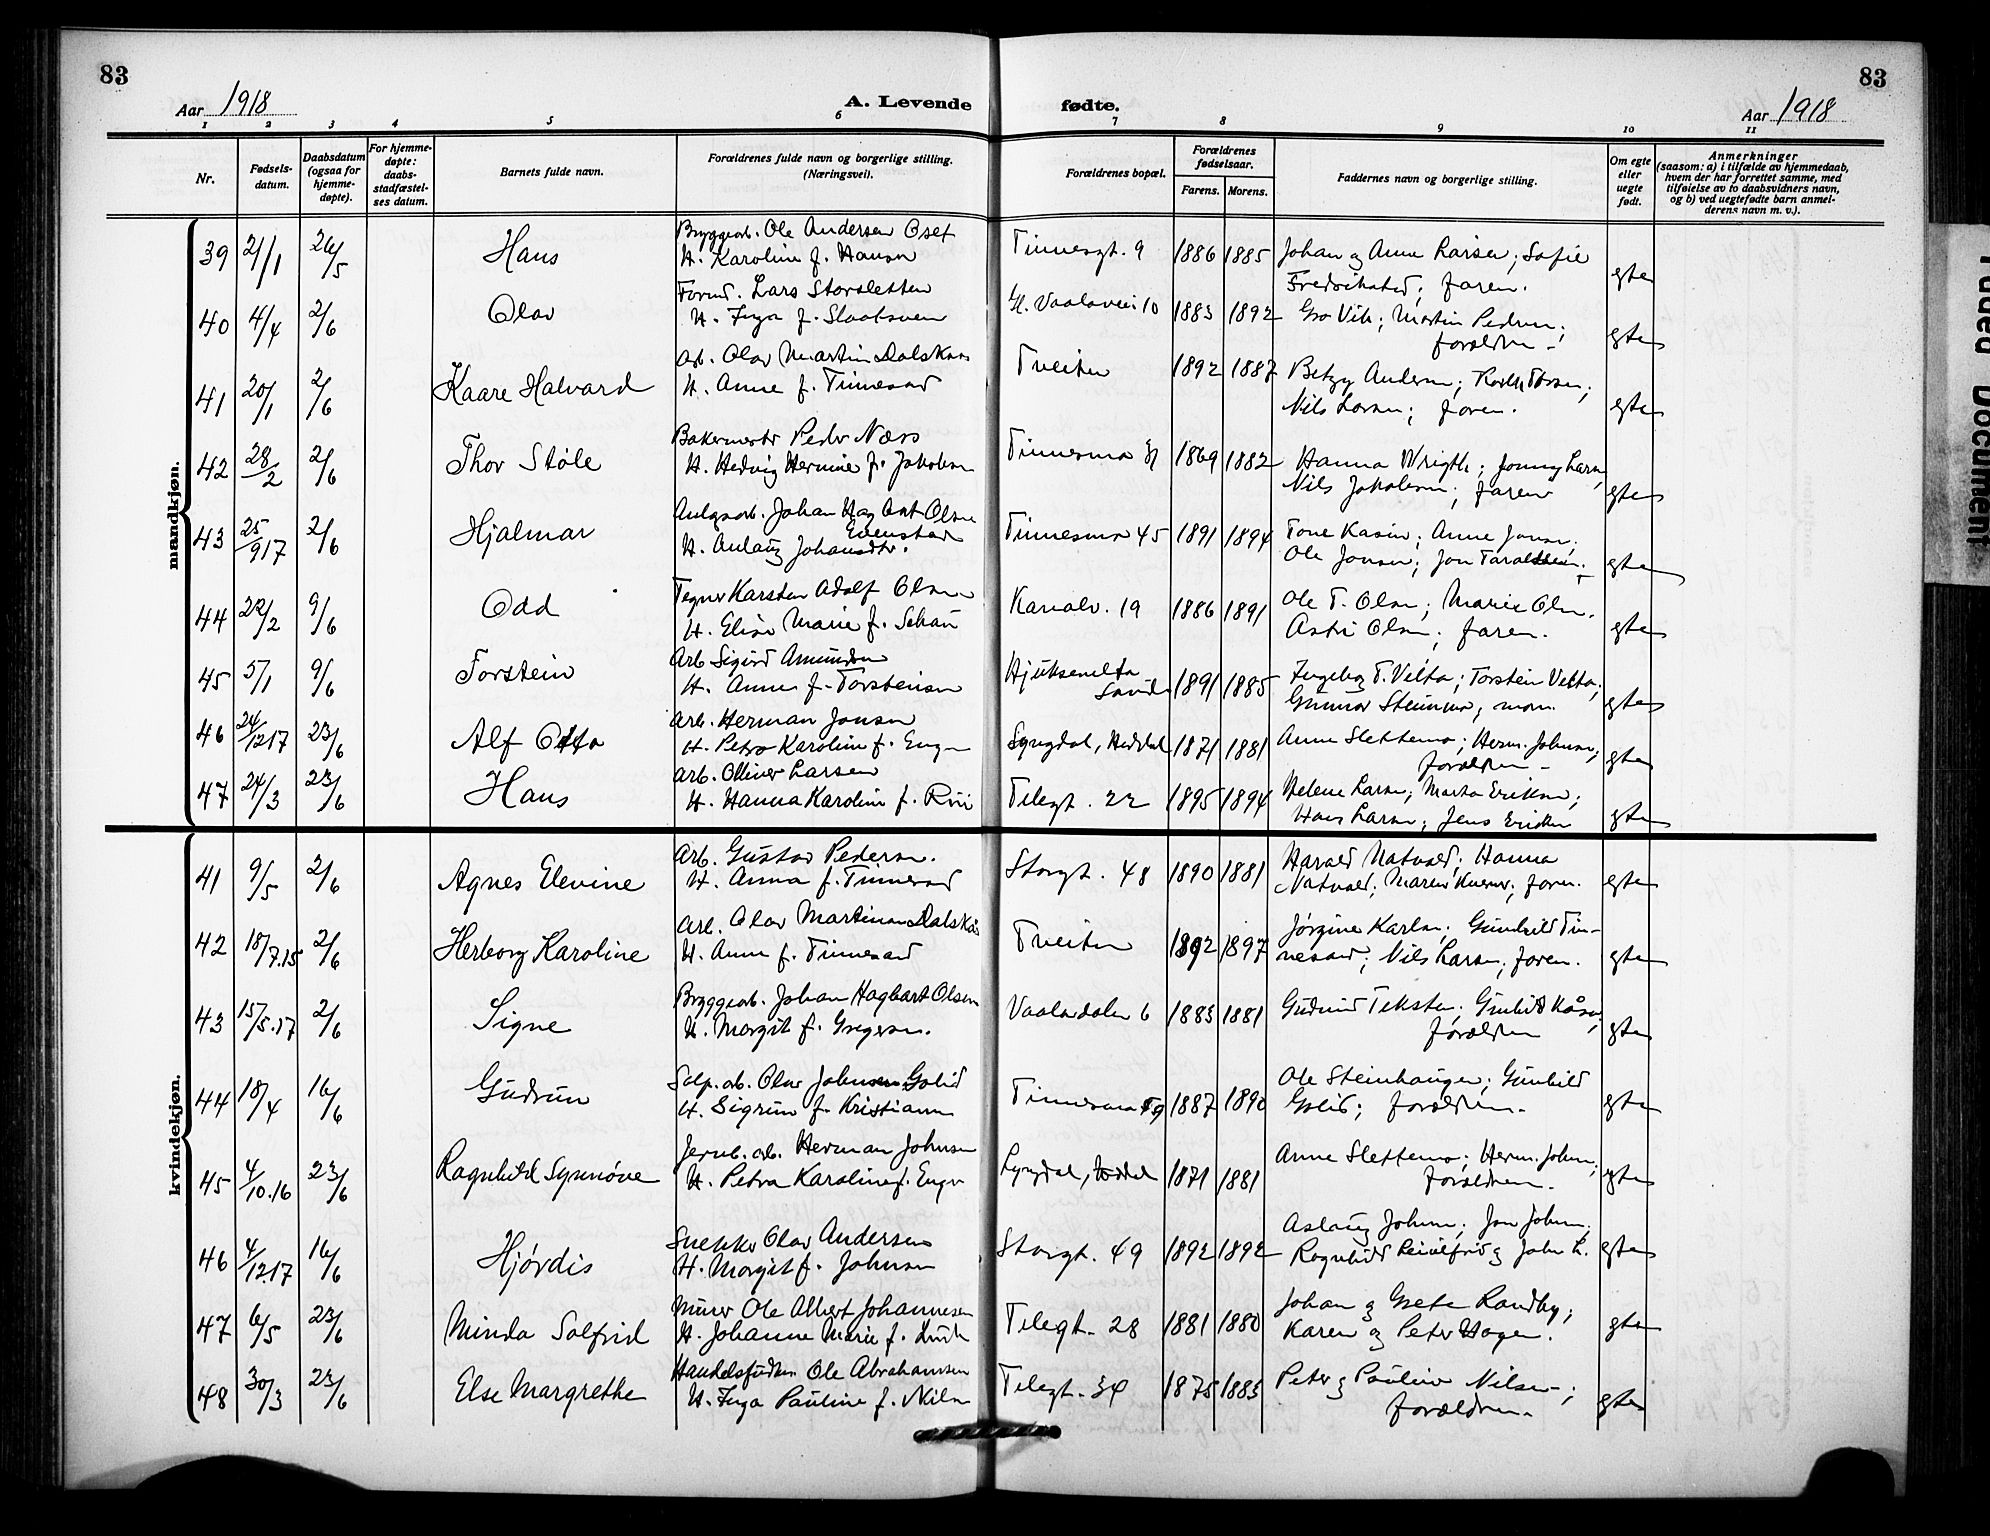 83
83
Aar 1918
A. Levende fødte.
Aar 1918
1 2 3 4 5 6 7 8 9 10 11
Nr.
Fødsels-
datum.
Daabsdatum
(ogsaa for
hjemme-
døpte).
For hjemme-
døpte:
daabs-
stadfæstel-
ses datum.
Barnets fulde navn.
Forældrenes fulde navn og borgerlige stilling.
(Næringsvei).
Forældrenes bopæl.
Forældrenes
fødselsaar.
Farens. Morens.
Faddernes navn og borgerlige stilling.
Om egte
eller
uegte
født.
Anmerkninger
(saasom: a) i tilfælde av hjemmedaab,
hvem der har forrettet samme, med
tilføielse av to daabsvidners navn,
og b) ved uegtefødte barn anmel-
derens navn m. v.).
mandkjøn.
39 21/1 26/5 Hans
Bryggearb. Ole Andersen Oset
H. Karoline f. Hansn
Tinnesgt. 9 1886 1885
Johan og Anne Larsen; Sofie
Fredrikstad; faren.
egte
40 4/4 2/6 Olav
Formd. Lars Storsletten
H. Inga f. Slaatsveen
Gl. Vaalavei 10 1883 1892
Gro Vik; Martin Pedersn;
forældrn
egte
41 20/1 2/6 Kaare Halvard
Arb. Olav Martin Dalskaas
H. Anne f. Tinnesand
Tveiten 1892 1887
Betzy Andersn;
Nils Larsn; faren.
egte
42 28/2 2/6 Thor Ståle
Bakermester Peder Næss
H. Hedvig Hermine f. Jakobsn
Tinnesmo 1869 1882
Hanna Wrigth; Jonny Larsn
Nils Jakobsen; faren
egte
43 25/917 2/6 Hjalmar
Anlgsarb. Johan Hag Olsen
Evenstad
H. Aslaug Johansdtr.
Tinnesmo 45 1891 1894
Tone Kasin; Anne Jonsn;
Ole Jonsen; Jon Taraldsen.
egte
44 22/2 9/6 Odd
Tegner Karsten Adolf Olsen
H. Elise Marie f. Schau
Kanalv. 19 1886 1891
Ole T. Olsn; Marie Olsn.
Astri Olsn; faren.
egte
45 5/1 9/6 Torstein
Arb Sigurd Amundsn
H. Anne f. Torstensen
Hjuksevelta
Sauda 1891 1885
Ingebog T. Velta; Torstein Velta;
Gunnar Steinmo; mom.
egte
46 24/1217 23/6 Alf Otto
Arb. Herman Jonsen
H. Petra Karoline f. Engn
Lyngdal, Heddal 1871 1881
Anne Slettemo; Herm. Johnsen;
forældren
egte
47 24/3 23/6 Hans
Arb. Olliver Larsen
H. Hanna Karoline f. Rui
Telegt. 22 1895 1894
Helene Larsn; Marta Eriksn;
Hans Larsn; Jens Eriksn
egte
kvindekjøn.
41 9/5 2/6 Agnes Elevine
Arb. Gustav Pedersn.
H. Anna f. Tinnesand
Storgt. 48 1890 1881
Harald Natvald; Hanna
Natvald; Maren; faren.
egte
42 18/7.15 2/6 Herborg Karoline
Arb. Olav Martinus Dalskås
H. Anne f. Tinnesand
Tveiten 1892 1897
Jørgine Karlsn; Gunhild Tin-
nesand; Nils Larsn; faren.
egte
43 15/5.17 2/6 Signe
Bryggearb. Johan Hagbart Olsen
H. Margit f. Gregersn.
Vaaladalen 6 1883 1881
Gudrund Teksten; Gunhild Kåsa;
forældren
egte
44 18/4 16/6 Gudrun
Salp.arb. Olav Johnsen Golid
H. Sigrun f. Kristiann
Tinnesmo 1887 1890
Ole Steinhaugen; Gunhild
Golid; forældrene.
egte
45 4/10.16 23/6 Ragnhild Synnøve
Jernb.arb. Herman Johnsen
H. Petra Karoline f. Engn
Lyngdal, Heddal 1871 1881
Anne Slettemo; Herm. Johnn;
forældren.
egte
46 4/12.17 16/6 Hjørdis
Snekker Olav Andersen
H. Margit f. Johnsen
Storgt. 49 1892 1892
Aslaug Johnsn; Jon Johnsn;
Ragnhild og John L.
egte
47 6/5 23/6 Minda Solfrid
Murer Ole Albert Johannesen
H. Johanne Marie f. Lurk
Telegt. 28 1881 1880
Johan og Grete Landby;
Karen og Peter Hagen.
egte
48 30/3 23/6 Else Margrethe
Handelsfudm Ole Abrahamsen
H. Inga Pauline f. Nilsn
Telegt. 34 1875 1883
Peter og Pauline Nilsen;
forældren.
egte
Document